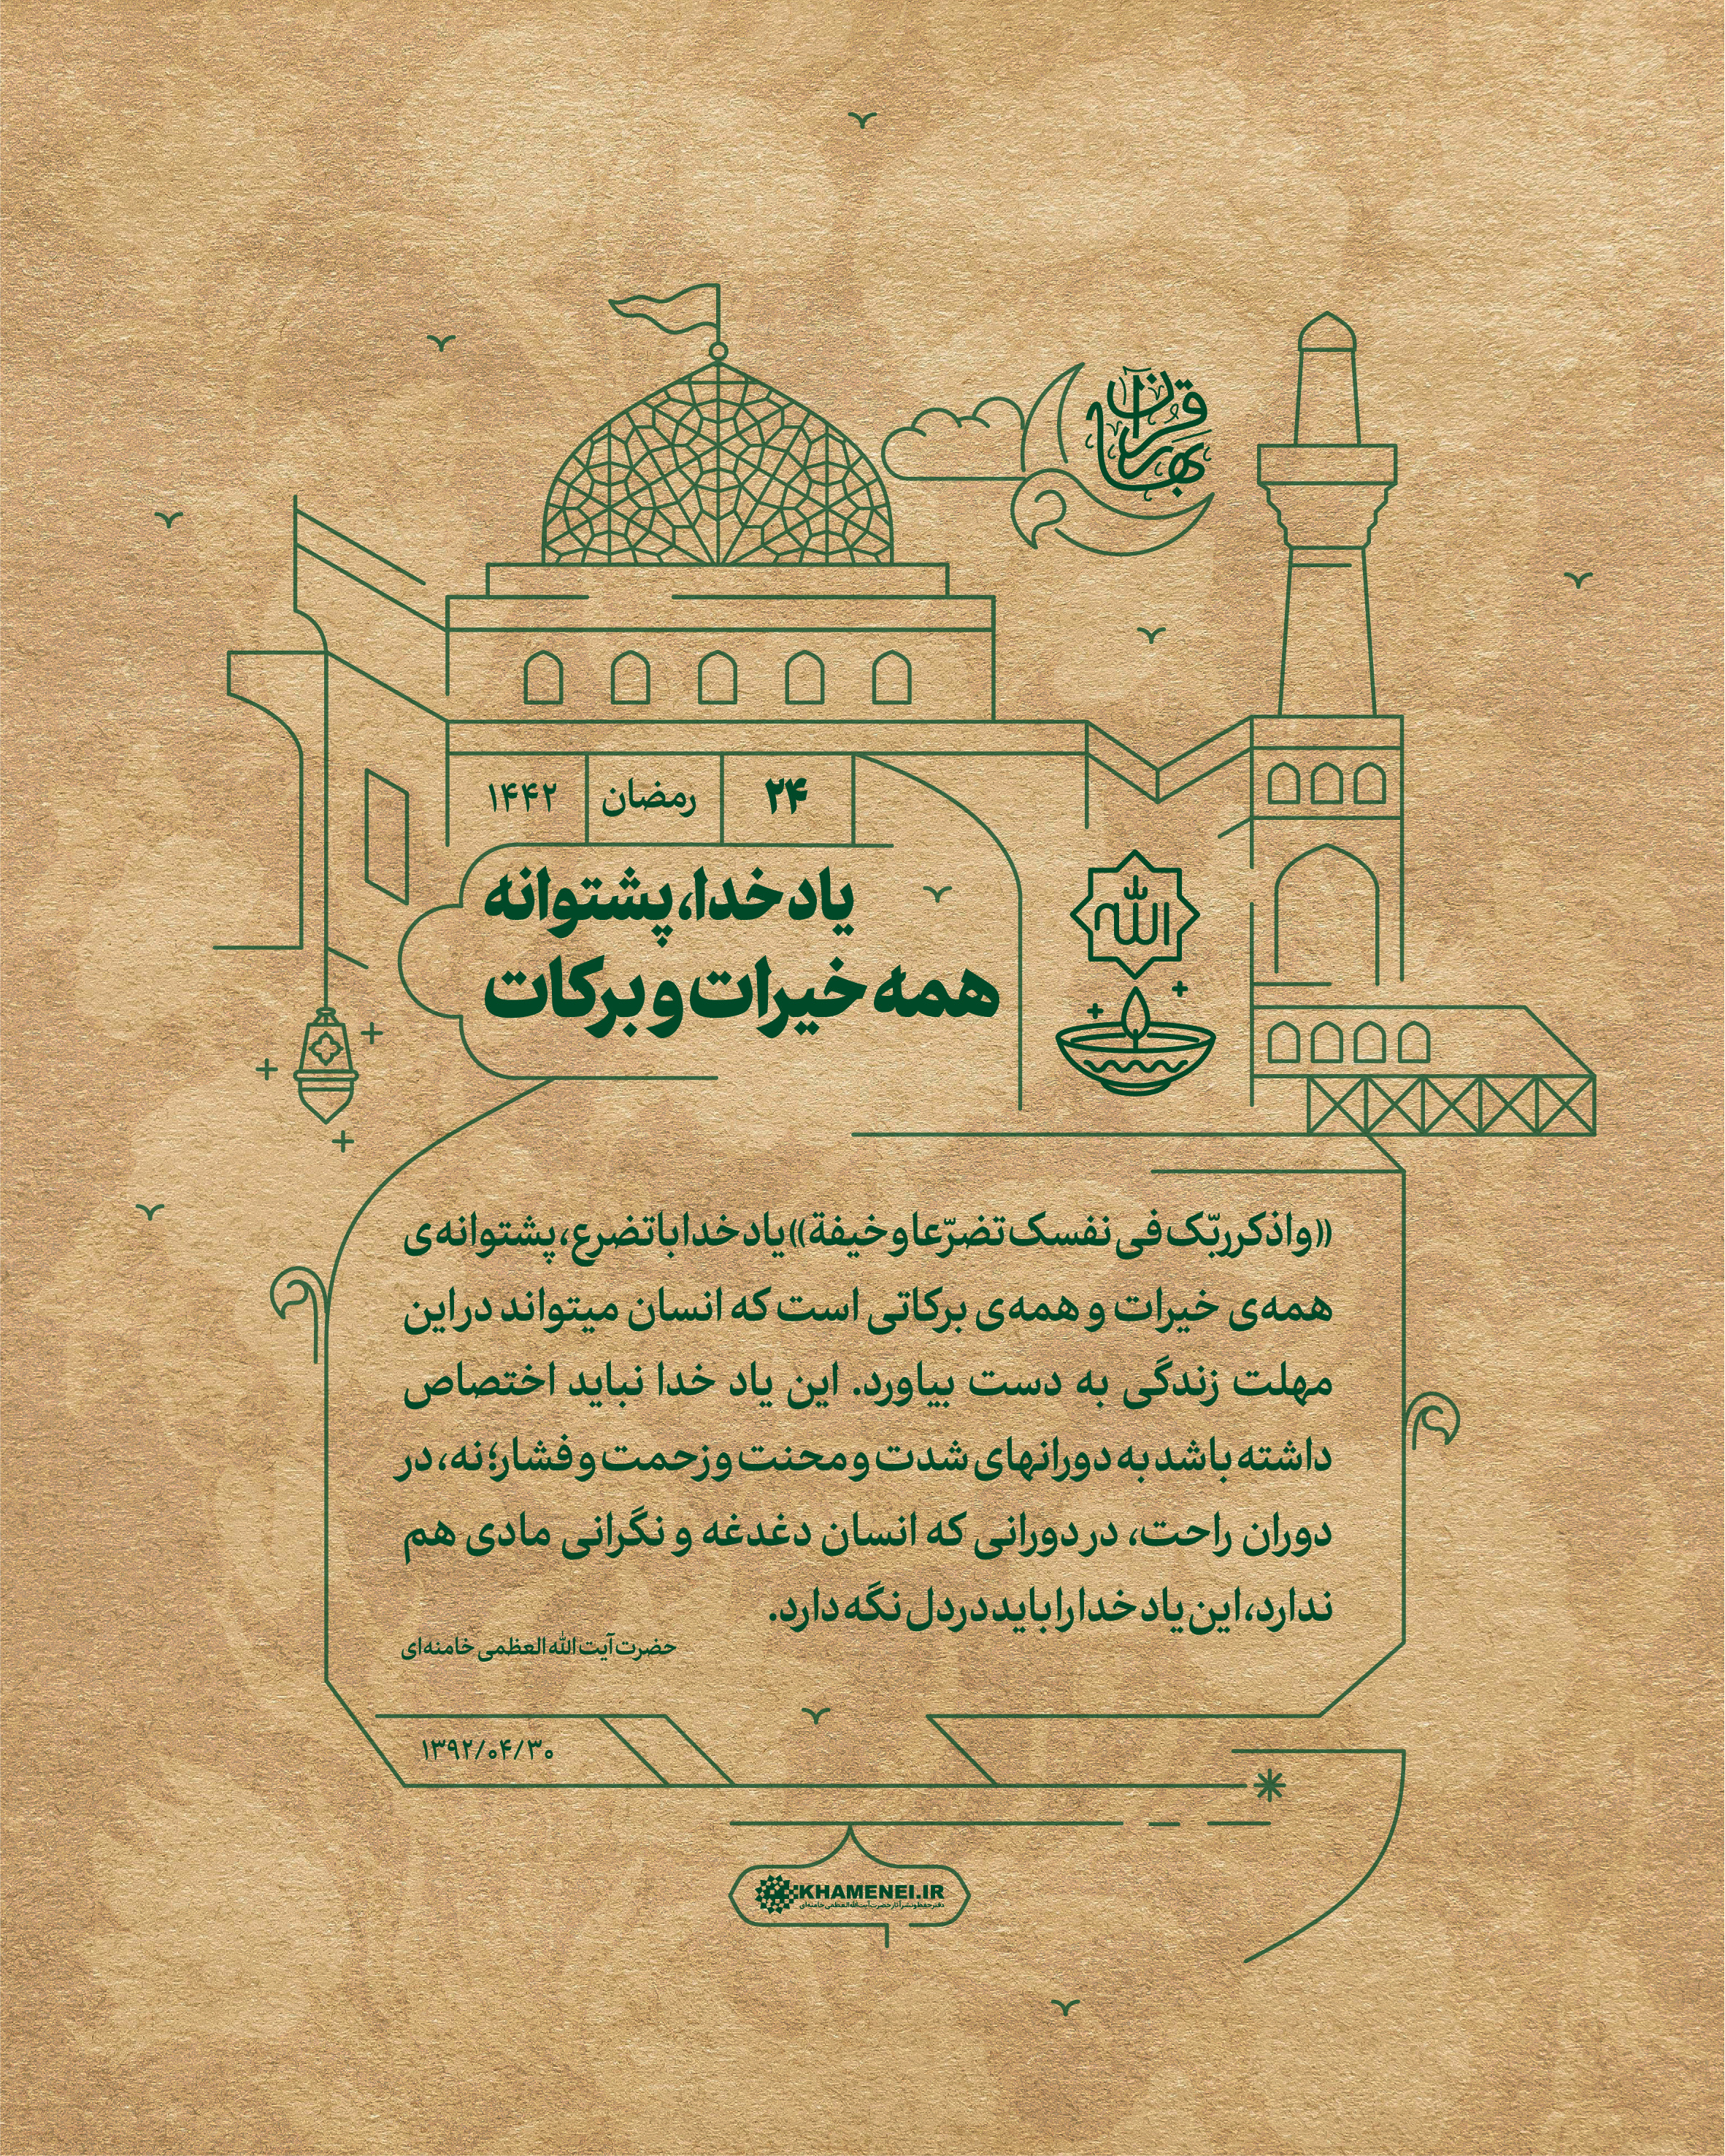 بهار قرآن
۲۴ رمضان ۱۴۴۲
یاد خدا، پشتوانه
همه خیرات و برکات
الله
((واذکر ربّک فی نفسک تضرّعا و خیفة)) یاد خدا با تضرع، پشتوانه‌ی
همه‌ی خیرات و همه‌ی برکاتی است که انسان میتواند در این
مهلت زندگی به دست بیاورد. این یاد خدا نباید اختصاص
داشته باشد به دورانهای شدت و محنت و زحمت و فشار؛ نه، در
دوران راحت، در دورانی که انسان دغدغه و نگرانی مادی هم
ندارد، این یاد خدا را باید در دل نگه دارد.
حضرت آیت الله العظمی خامنه‌ای
۱۳۹۲/۰۴/۳۰
KHAMENEI.IR
دفتر حفظ و نشر آثار حضرت آیت‌الله العظمی خامنه‌ای